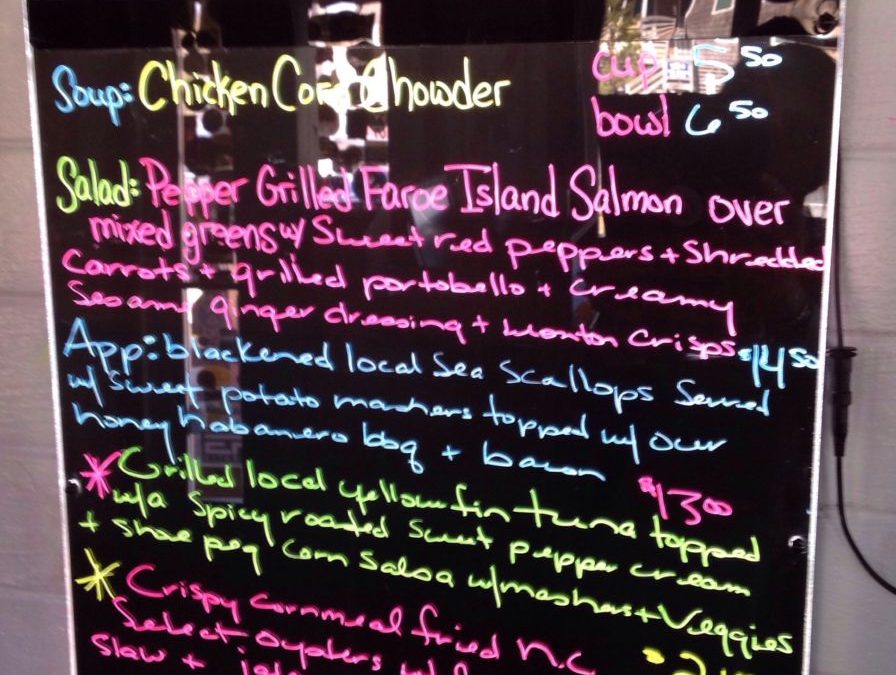 Soup: Chicken Corn Chowder cup 5 50
bowl 6 50
Salad: Pepper Grilled Faroe Island Salmon over
mixed greens w/ Sweet red peppers + Shredded
Carrots + grilled portobello + creamy
Sesame ginger dressing + wonton Crisps $14 50
App: blackened local Sea Scallops Served
w/ sweet potato mashers topped w/ our
honey habanero bbq + bacon
$13 00
* Grilled local yellowfin tuna topped
w/a Spicy roasted Sweet pepper cream
+ shoe peg corn Salsa w/mashers + Veggies
* Crispy Cornmeal fried n.c
Select oysters w/
Slaw +